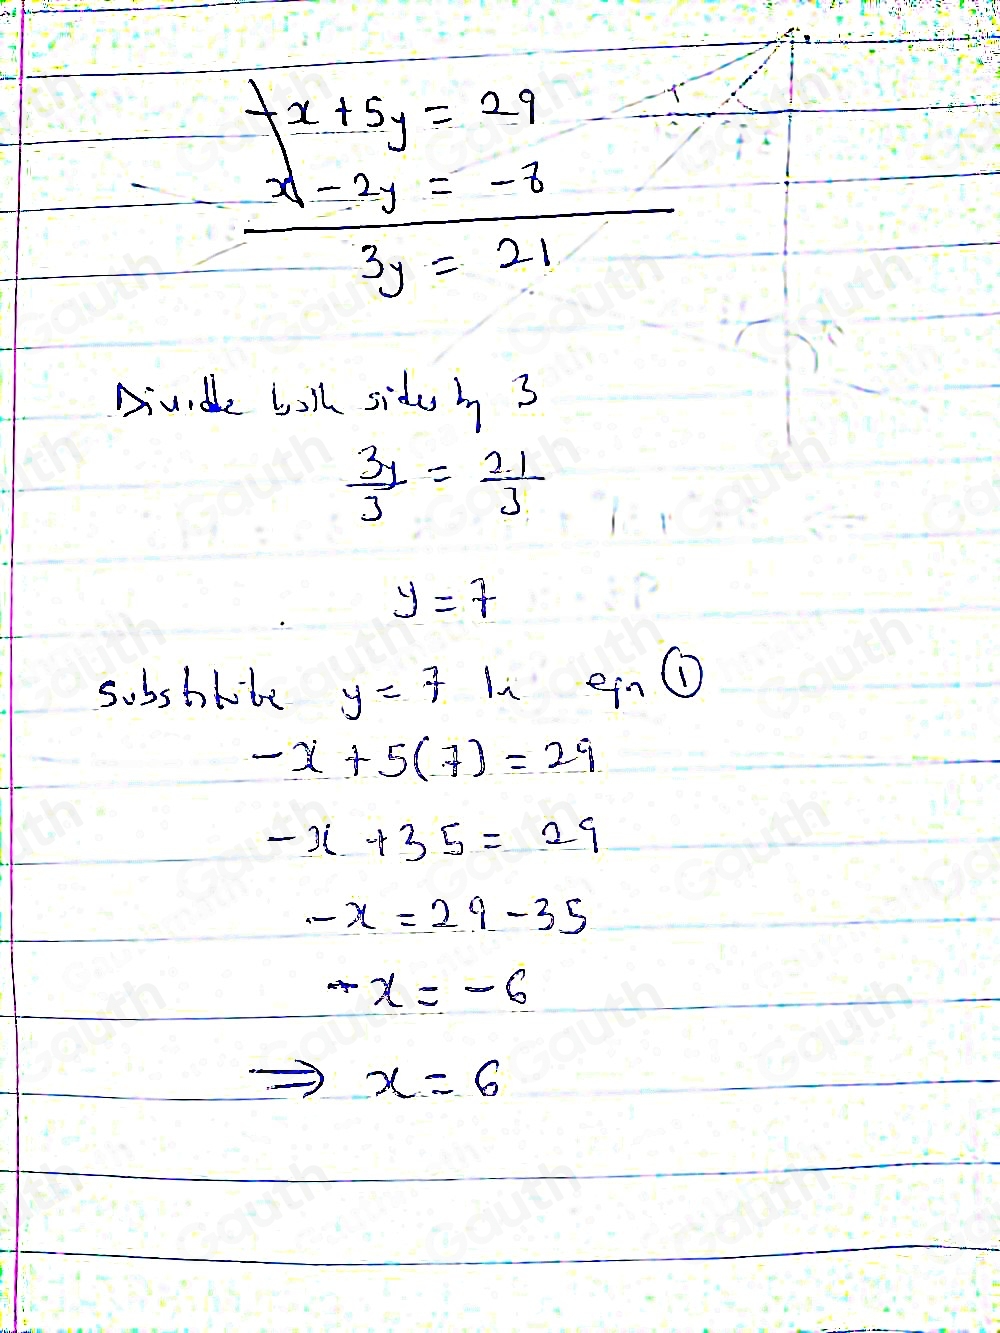 -x + 5y = 29
x - 2y = -8
3y = 21
Divide both sides by 3
3y/3 = 21/3
y = 7
substitute y = 7 in eqn ①
-x + 5(7) = 29
-x + 35 = 29
-x = 29 - 35
-x = -6
⇒ x = 6